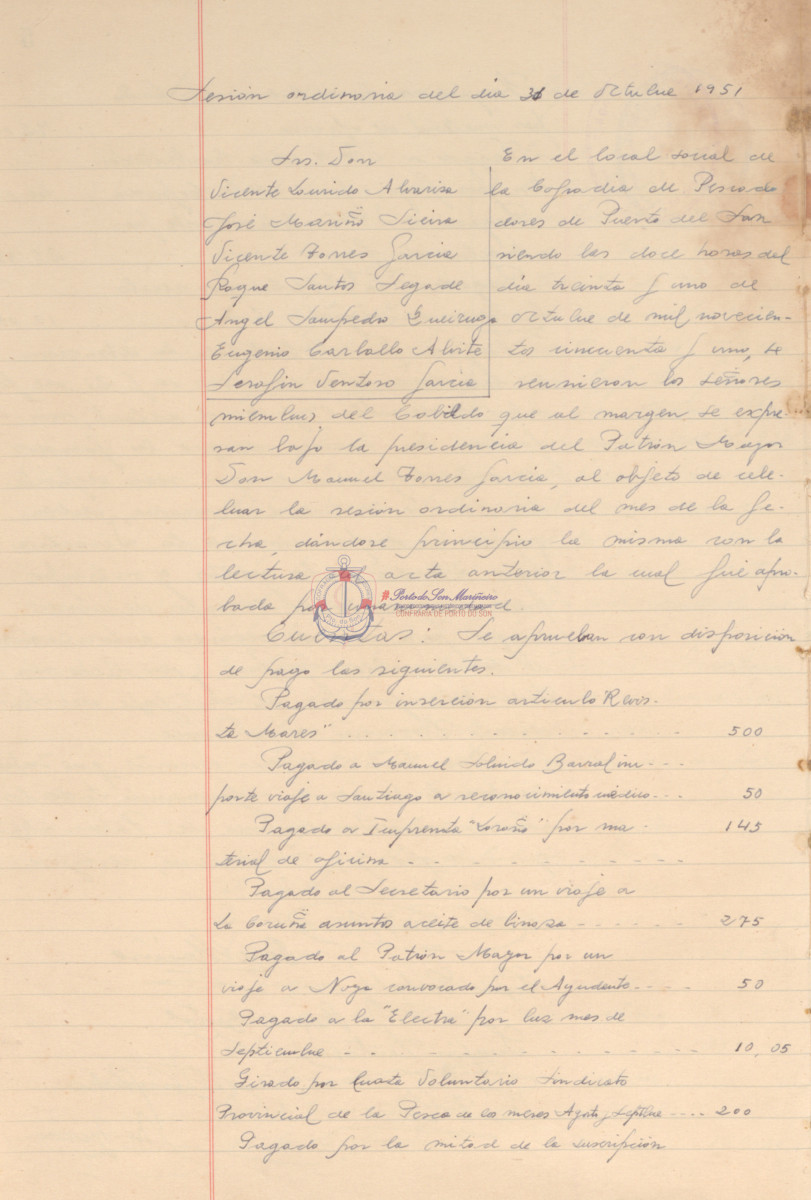 Sesión ordinaria del dia 31 de Octubre 1951
Srs. Don
Vicente Lourido Alvariza
José Mariño Sieira
Vicente Torres Garcia
Roque Santos Segade
Angel Sampedro Queiruga
Eugenio Carballo Alvite
Serafin Ventoso Garcia
En el local social de
la Cofradia de Pescado
dores de Puerto del Son
siendo las doce horas del
día treinta y uno de
octubre de mil novecien-
tos cincuenta y uno, se
reunieron los señores
miembros del Cabildo que al margen se expre-
san bajo la presidencia del Patrón Mayor
Don Manuel Torres Garcia, al objeto de cele-
brar la sesión ordinaria del mes de la fe-
cha, dándose principio la misma con la
lectura del acta anterior la cual fué apro-
bada por unanimidad.
Porto do Son Mariñeiro
CONFRARIA DE PORTO DO SON
Cuentas: Se aprueban con disposicion
de pago las siguientes.
Pagado por inserción articulo Revis-
ta Mares" 500
Pagado a Manuel Barral im---
porte viaje a Santiago a reconocimiento médico--- 50
Pagado a Imprenta "Loroño" por ma- 145
terial de oficina
Pagado al Secretario por un viaje a
La Coruña asuntos aceite de linaza 275
Pagado al Patrón Mayor por un
viaje a Noya convocado por el Ayudante 50
Pagado a la "Electra" por luz mes de
Septiembre 10,05
Girado por Cuota Voluntaria Sindicato
Provincial de la Pesca de los meses Agosto y Septbre 200
Pagado por la mitad de la suscripción